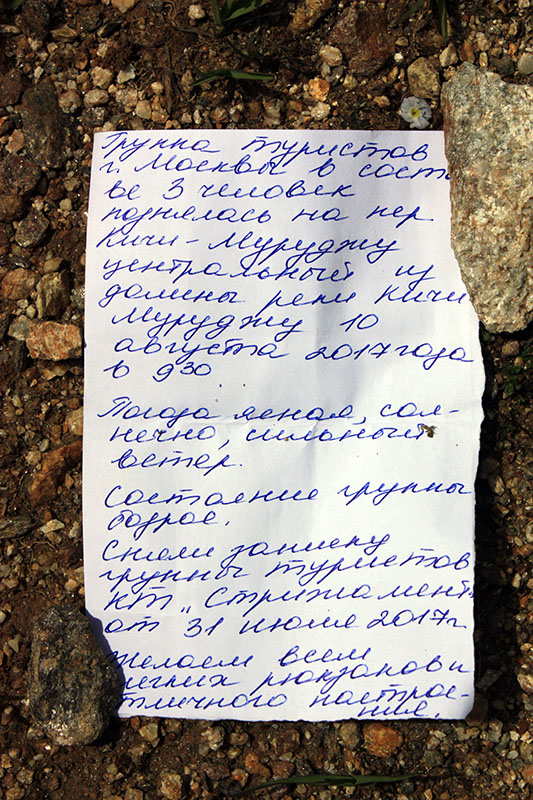 Группа туристов
г. Москвы в соста
ве 3 человек
поднялась на пер
Кичи-Муруджу
центральный из
долины реки Кичи
Муруджу 10
августа 2017 года
в 9 30
Погода ясная, сол-
нечно, сильный
ветер.
Состаение группы
бодрое.
Сняли записку
группы туристов
КТ „Стрижамент"
от 31 июля 2017г
Желаем всем
легких рюкзаков и
отличного настрое-
ния.